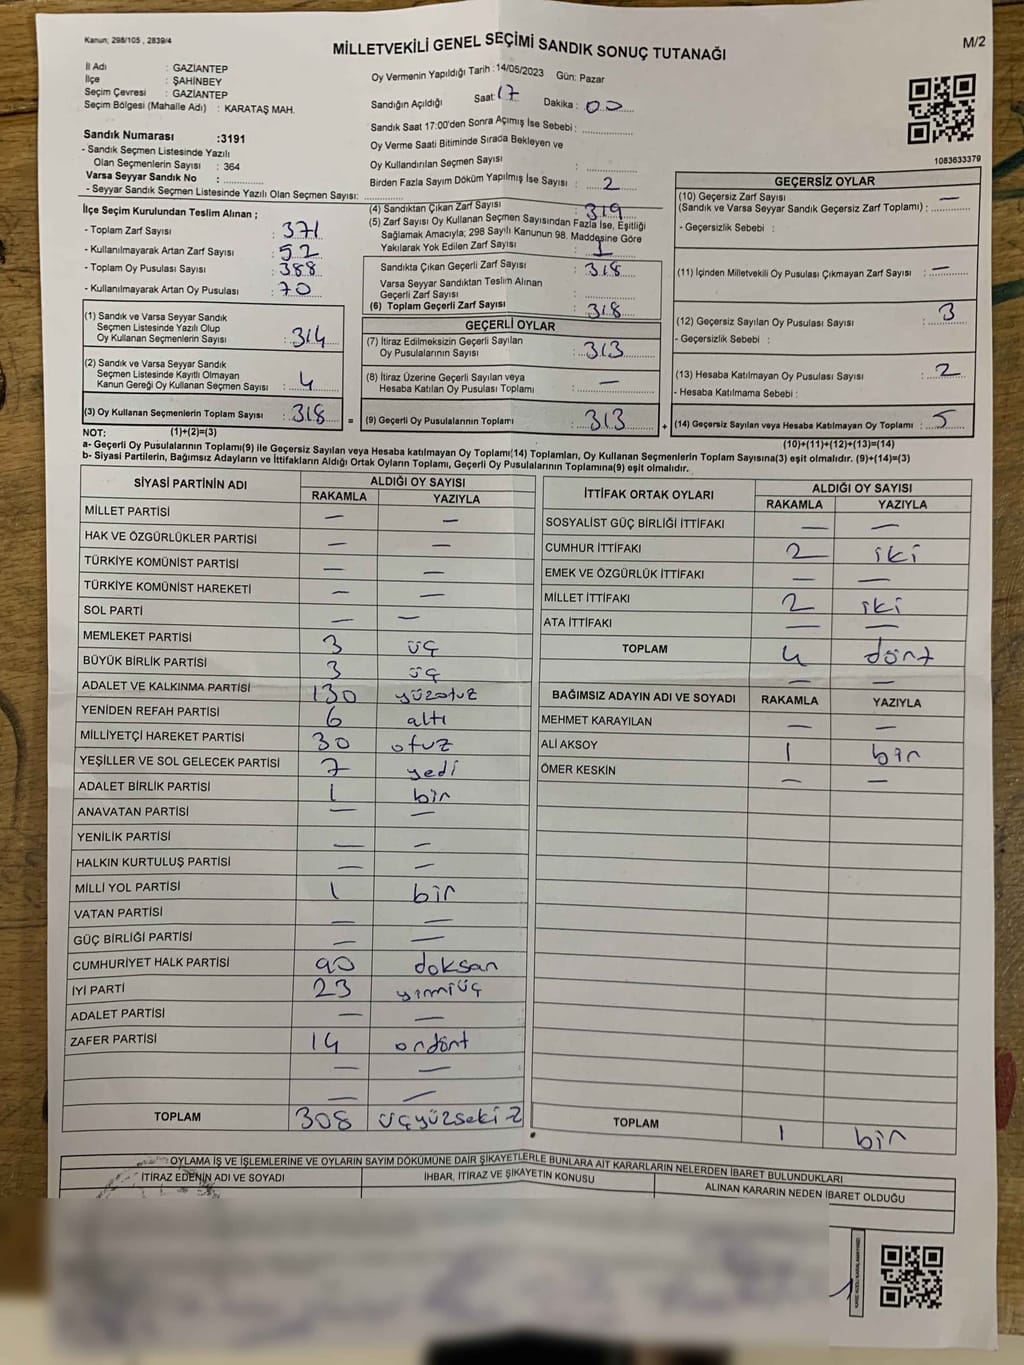 Kanun; 298/105 , 2839/4
MİLLETVEKİLİ GENEL SEÇİMİ SANDIK SONUÇ TUTANAĞI
M/2
İl Adı : GAZİANTEP
İlçe : ŞAHİNBEY
Seçim Çevresi : GAZİANTEP
Seçim Bölgesi (Mahalle Adı) : KARATAŞ MAH.
Oy Vermenin Yapıldığı Tarih : 14/05/2023 Gün: Pazar
Sandığın Açıldığı Saat: 17 Dakika : 00
Sandık Saat 17:00'den Sonra Açımış İse Sebebi :
Oy Verme Saati Bitiminde Sırada Bekleyen ve
Oy Kullandırılan Seçmen Sayısı :
Birden Fazla Sayım Döküm Yapılmış İse Sayısı : 2
1083633379
Sandık Numarası :3191
- Sandık Seçmen Listesinde Yazılı
Olan Seçmenlerin Sayısı : 364
Varsa Seyyar Sandık No :
- Seyyar Sandık Seçmen Listesinde Yazılı Olan Seçmen Sayısı:
İlçe Seçim Kurulundan Teslim Alınan ;
- Toplam Zarf Sayısı : 371
- Kullanılmayarak Artan Zarf Sayısı : 52
- Toplam Oy Pusulası Sayısı : 388
- Kullanılmayarak Artan Oy Pusulası : 70
(1) Sandık ve Varsa Seyyar Sandık
Seçmen Listesinde Yazılı Olup
Oy Kullanan Seçmenlerin Sayısı : 314
(2) Sandık ve Varsa Seyyar Sandık
Seçmen Listesinde Kayıtlı Olmayan
Kanun Gereği Oy Kullanan Seçmen Sayısı : 4
(3) Oy Kullanan Seçmenlerin Toplam Sayısı : 318
(4) Sandıktan Çıkan Zarf Sayısı : 319
(5) Zarf Sayısı Oy Kullanan Seçmen Sayısından Fazla İse, Eşitliği
Sağlamak Amacıyla; 298 Sayılı Kanunun 98. Maddesine Göre
Yakılarak Yok Edilen Zarf Sayısı : 1
Sandıkta Çıkan Geçerli Zarf Sayısı : 318
Varsa Seyyar Sandıktan Teslim Alınan
Geçerli Zarf Sayısı :
(6) Toplam Geçerli Zarf Sayısı : 318
GEÇERLİ OYLAR
(7) İtiraz Edilmeksizin Geçerli Sayılan
Oy Pusulalarının Sayısı : 313
(8) İtiraz Üzerine Geçerli Sayılan veya
Hesaba Katılan Oy Pusulası Toplamı : —
= (9) Geçerli Oy Pusulalarının Toplamı : 313
GEÇERSİZ OYLAR
(10) Geçersiz Zarf Sayısı
(Sandık ve Varsa Seyyar Sandık Geçersiz Zarf Toplamı) : —
- Geçersizlik Sebebi :
(11) İçinden Milletvekili Oy Pusulası Çıkmayan Zarf Sayısı : —
(12) Geçersiz Sayılan Oy Pusulası Sayısı : 3
- Geçersizlik Sebebi :
(13) Hesaba Katılmayan Oy Pusulası Sayısı : 2
- Hesaba Katılmama Sebebi :
+ (14) Geçersiz Sayılan veya Hesaba Katılmayan Oy Toplamı : 5
NOT: (1)+(2)=(3) (10)+(11)+(12)+(13)=(14)
a- Geçerli Oy Pusulalarının Toplamı(9) ile Geçersiz Sayılan veya Hesaba katılmayan Oy Toplamı(14) Toplamları, Oy Kullanan Seçmenlerin Toplam Sayısına(3) eşit olmalıdır. (9)+(14)=(3)
b- Siyasi Partilerin, Bağımsız Adayların ve İttifakların Aldığı Ortak Oyların Toplamı, Geçerli Oy Pusulalarının Toplamına(9) eşit olmalıdır.
SİYASİ PARTİNİN ADI ALDIĞI OY SAYISI
RAKAMLA YAZIYLA
MİLLET PARTİSİ — —
HAK VE ÖZGÜRLÜKLER PARTİSİ — —
TÜRKİYE KOMÜNİST PARTİSİ — —
TÜRKİYE KOMÜNİST HAREKETİ — —
SOL PARTİ — —
MEMLEKET PARTİSİ 3 üç
BÜYÜK BİRLİK PARTİSİ 3 üç
ADALET VE KALKINMA PARTİSİ 130 yüzotuz
YENİDEN REFAH PARTİSİ 6 altı
MİLLİYETÇİ HAREKET PARTİSİ 30 otuz
YEŞİLLER VE SOL GELECEK PARTİSİ 7 yedi
ADALET BİRLİK PARTİSİ 1 bir
ANAVATAN PARTİSİ — —
YENİLİK PARTİSİ — —
HALKIN KURTULUŞ PARTİSİ — —
MİLLİ YOL PARTİSİ 1 bir
VATAN PARTİSİ — —
GÜÇ BİRLİĞİ PARTİSİ — —
CUMHURİYET HALK PARTİSİ 90 doksan
İYİ PARTİ 23 yirmiüç
ADALET PARTİSİ — —
ZAFER PARTİSİ 14 ondört
— —
— —
TOPLAM 308 üçyüzsekiz
İTTİFAK ORTAK OYLARI ALDIĞI OY SAYISI
RAKAMLA YAZIYLA
SOSYALİST GÜÇ BİRLİĞİ İTTİFAKI — —
CUMHUR İTTİFAKI 2 iki
EMEK VE ÖZGÜRLÜK İTTİFAKI — —
MİLLET İTTİFAKI 2 iki
ATA İTTİFAKI — —
TOPLAM 4 dört
— —
BAĞIMSIZ ADAYIN ADI VE SOYADI RAKAMLA YAZIYLA
MEHMET KARAYILAN — —
ALİ AKSOY 1 bir
ÖMER KESKİN — —
TOPLAM 1 bir
OYLAMA İŞ VE İŞLEMLERİNE VE OYLARIN SAYIM DÖKÜMÜNE DAİR ŞİKAYETLERLE BUNLARA AİT KARARLARIN NELERDEN İBARET BULUNDUKLARI
İTİRAZ EDENİN ADI VE SOYADI İHBAR, İTİRAZ VE ŞİKAYETİN KONUSU ALINAN KARARIN NEDEN İBARET OLDUĞU